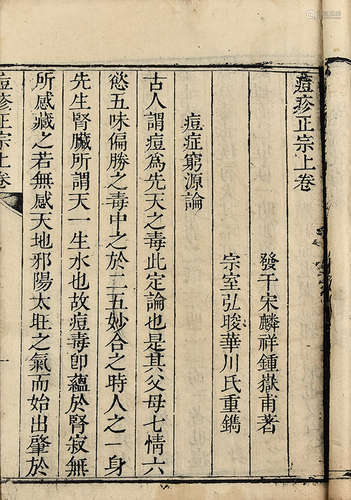 痘疹正宗上卷
發干宋麟祥鍾嶽甫著
宗室弘晙華川氏重鐫
痘症窮源論
古人謂痘爲先天之毒此定論也是其父母七情六
慾五味偏勝之毒中之於二五妙合之時人之一身
先生腎臟所謂天一生水也故痘毒卽蘊於腎寂無
所感藏之若無感天地邪陽太旺之氣而始出肇於
痘疹正宗上卷